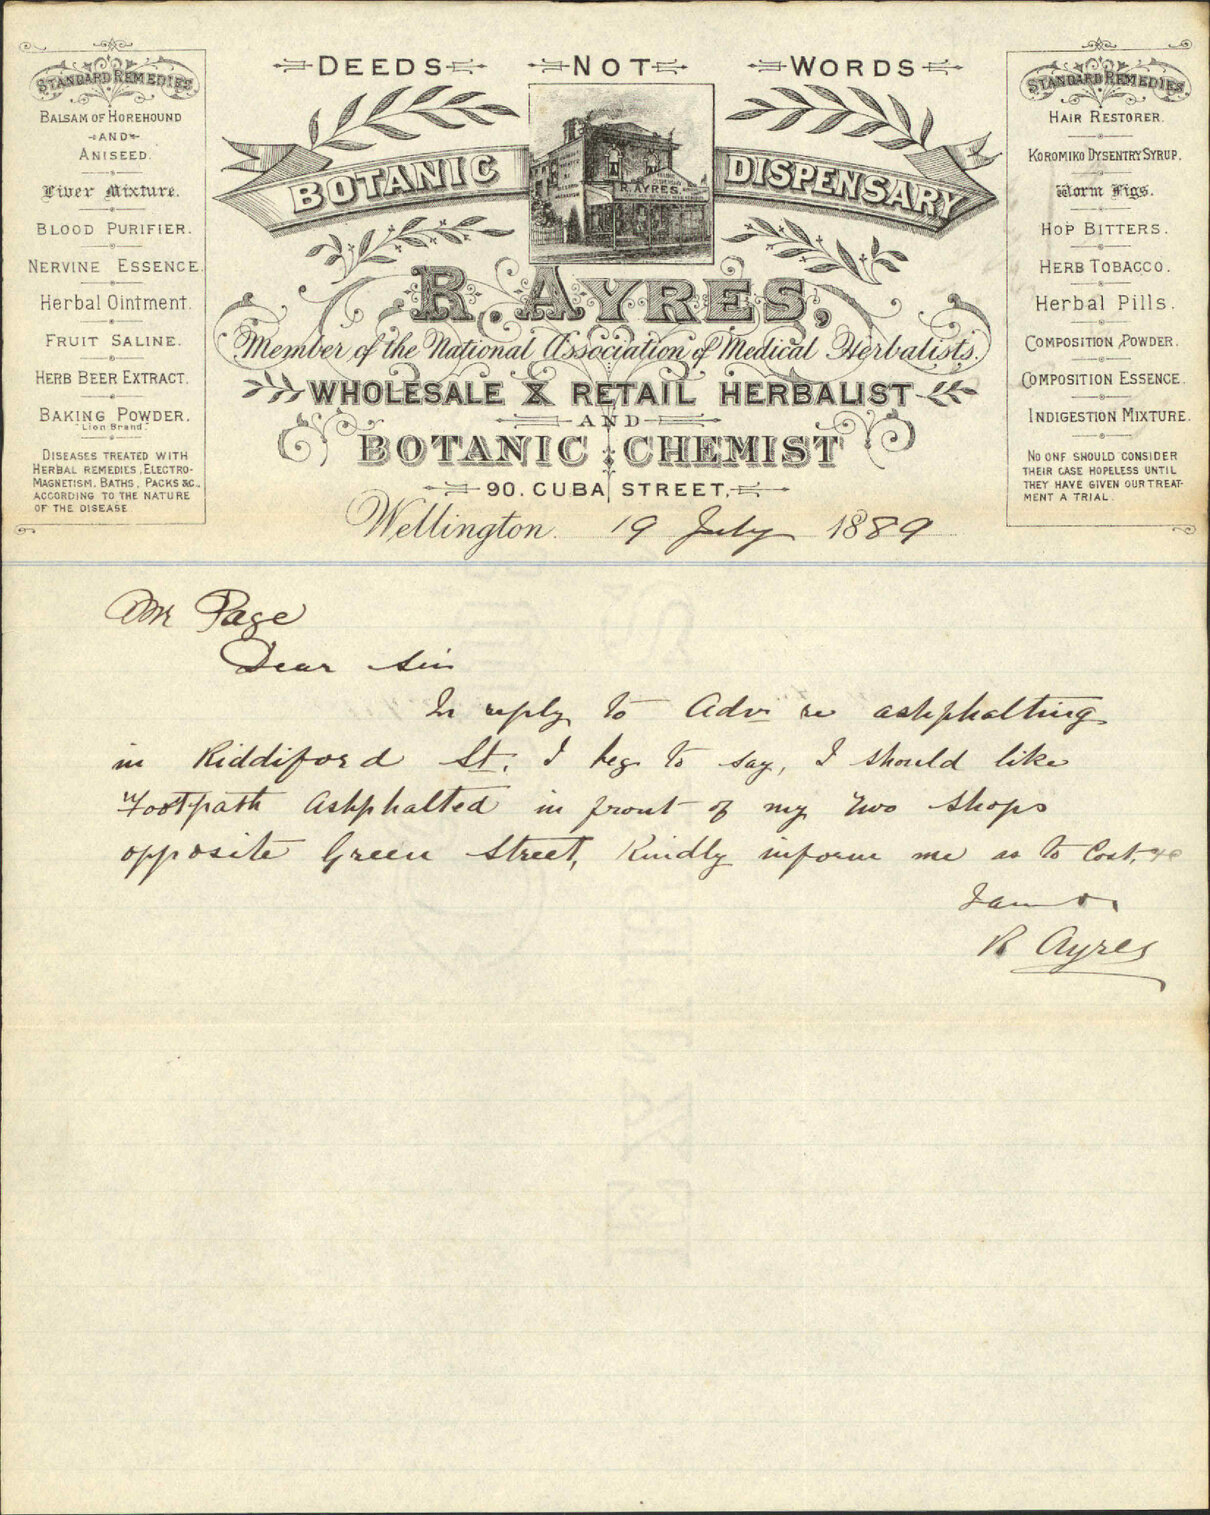 DEEDS NOT WORDS
STANDARD REMEDIES
BALSAM OF HOREHOUND
AND
ANISEED.
Liver Mixture.
BLOOD PURIFIER.
NERVINE ESSENCE.
Herbal Ointment.
FRUIT SALINE.
HERB BEER EXTRACT.
BAKING POWDER.
"Lion Brand"
DISEASES TREATED WITH
HERBAL REMEDIES, ELECTRO-
MAGNETISM, BATHS, PACKS &C.,
ACCORDING TO THE NATURE
OF THE DISEASE
BOTANIC DISPENSARY
R. AYRES.
R. AYRES,
Member of the National Association of Medical Herbalists.
WHOLESALE & RETAIL HERBALIST
AND
BOTANIC CHEMIST
90. CUBA STREET,
Wellington. 19 July 1889
STANDARD REMEDIES
HAIR RESTORER.
KOROMIKO DYSENTRY SYRUP.
Worm Figs.
HOP BITTERS.
HERB TOBACCO.
Herbal Pills.
COMPOSITION POWDER.
COMPOSITION ESSENCE.
INDIGESTION MIXTURE.
NO ONE SHOULD CONSIDER
THEIR CASE HOPELESS UNTIL
THEY HAVE GIVEN OUR TREAT-
MENT A TRIAL.
Mr Page
Dear Sir
In reply to Advt re ashphalting
in Riddiford St. I beg to say, I should like
Footpath Ashphalted in front of my two shops
opposite Green Street, Kindly inform me as to Cost, &c
I am
R Ayres